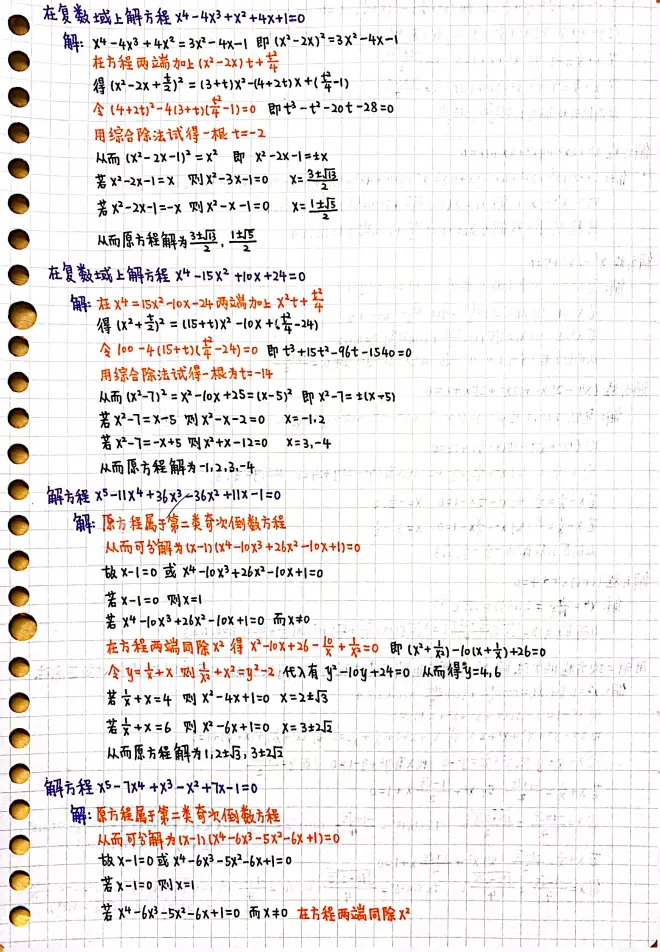 在复数域上解方程 x⁴-4x³+x²+4x+1=0
解: x⁴-4x³+4x²=3x²-4x-1 即 (x²-2x)²=3x²-4x-1
在方程两端加上(x²-2x)t+t²/4
得 (x²-2x+t/2)²=(3+t)x²-(4+2t)x+(t²/4-1)
令 (4+2t)²-4(3+t)(t²/4-1)=0 即t³-t²-20t-28=0
用综合除法试得一根 t=-2
从而 (x²-2x-1)²=x² 即 x²-2x-1=±x
若 x²-2x-1=x 则x²-3x-1=0 x=(3±√13)/2
若 x²-2x-1=-x 则x²-x-1=0 x=(1±√5)/2
从而原方程解为 (3±√13)/2, (1±√5)/2
在复数域上解方程 x⁴-15x²+10x+24=0
解: 在 x⁴=15x²-10x-24两端加上 x²t+t²/4
得 (x²+t/2)²=(15+t)x²-10x+(t²/4-24)
令 100-4(15+t)(t²/4-24)=0 即 t³+15t²-96t-1540=0
用综合除法试得一根为t=-14
从而 (x²-7)²=x²-10x+25=(x-5)² 即 x²-7=±(x-5)
若x²-7=x-5 则 x²-x-2=0 x=-1,2
若x²-7=-x+5 则x²+x-12=0 x=3,-4
从而原方程解为-1,2,3,-4
解方程 x⁵-11x⁴+36x³-36x²+11x-1=0
解: 原方程属于第二类奇次倒数方程
从而可分解为(x-1)(x⁴-10x³+26x²-10x+1)=0
故 x-1=0 或 x⁴-10x³+26x²-10x+1=0
若 x-1=0 则x=1
若 x⁴-10x³+26x²-10x+1=0 而x≠0
在方程两端同除x² 得 x²-10x+26-10/x+1/x²=0 即 (x²+1/x²)-10(x+1/x)+26=0
令 y=1/x+x 则 1/x²+x²=y²-2 代入有 y²-10y+24=0 从而得y=4,6
若1/x+x=4 则 x²-4x+1=0 x=2±√3
若1/x+x=6 则 x²-6x+1=0 x=3±2√2
从而原方程解为1,2±√3,3±2√2
解方程 x⁵-7x⁴+x³-x²+7x-1=0
解: 原方程属于第二类奇次倒数方程
从而可分解为(x-1)(x⁴-6x³-5x²-6x+1)=0
故 x-1=0 或 x⁴-6x³-5x²-6x+1=0
若 x-1=0 则 x=1
若 x⁴-6x³-5x²-6x+1=0 而x≠0 在方程两端同除x²